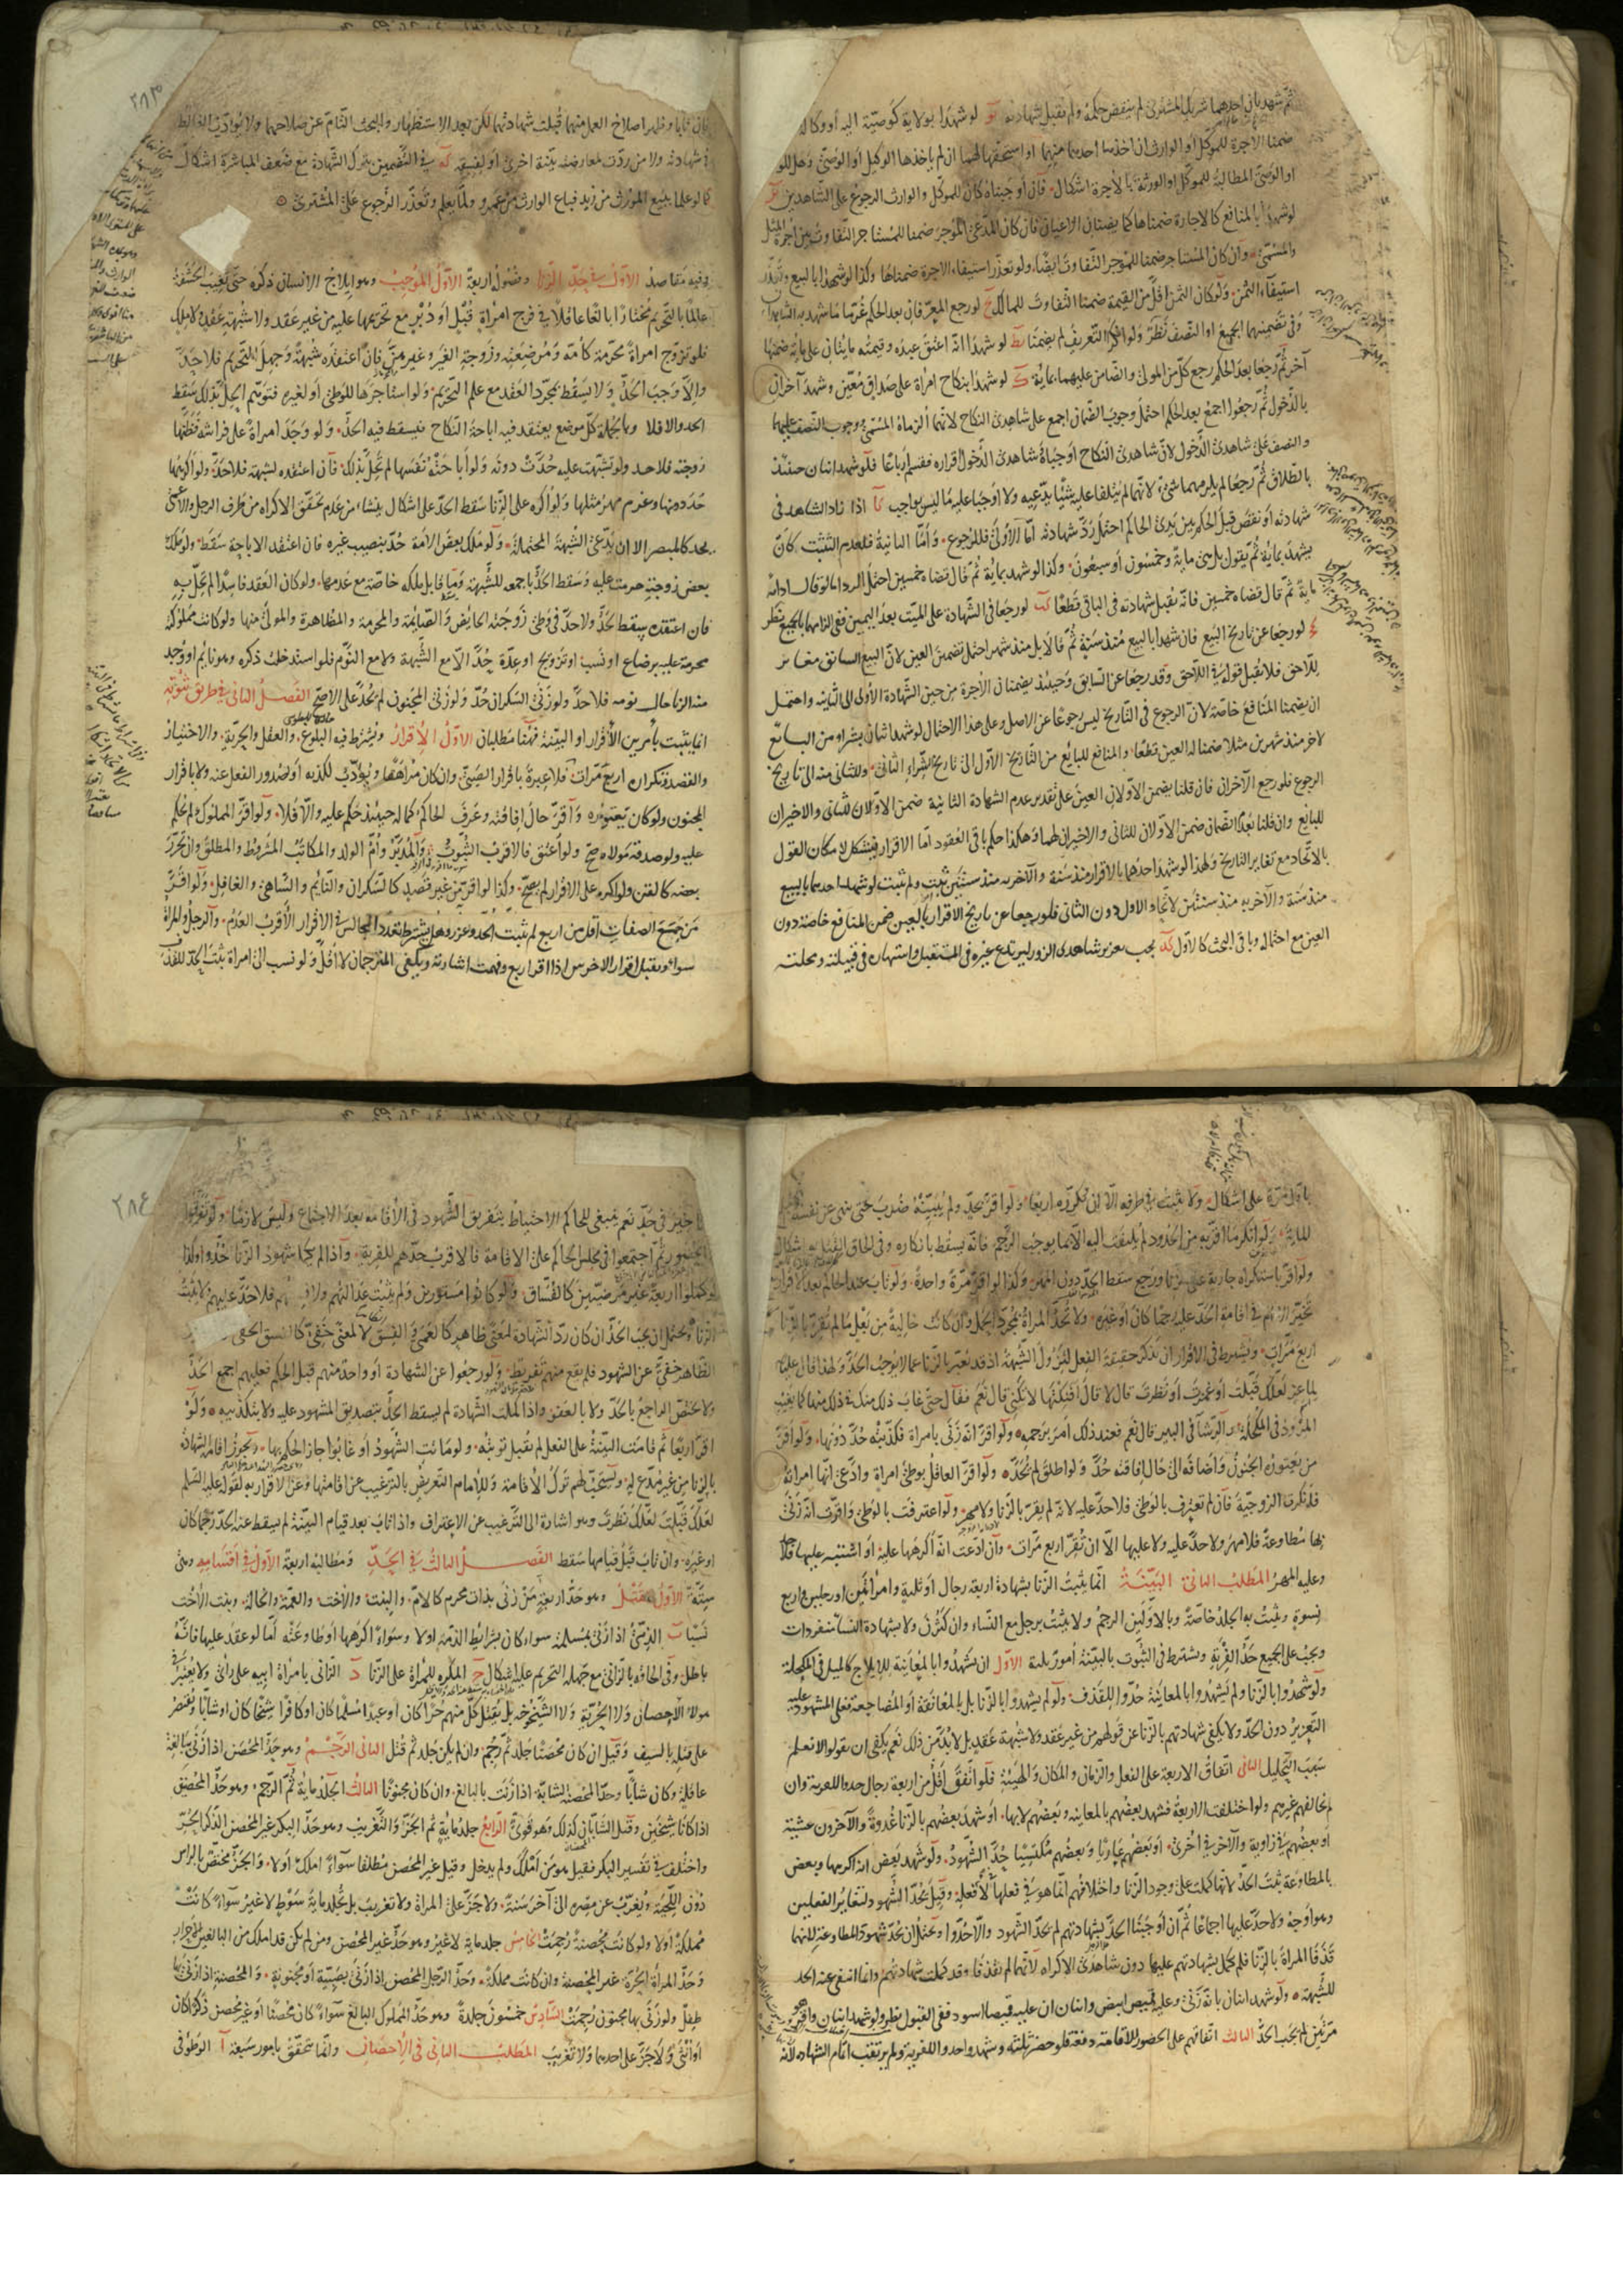 ثم شهد بان احدهما شريك المشترى لم ينقض حكمه ولم تقبل شهادته يو لو شهدا بولاية كوصية اليه أو وكالة
ضمنا الاجرة للموكل او الوارث ان اخذها احدهما منهما او استحقها لهما ان لم ياخذها الوكيل أو الوصى وهل للو
او الوصى المطالبة للموكل او الورثة بالاجرة اشكال فان أوجبناه كان للموكل والوارث الرجوع على الشاهدين
لو شهدا بالمنافع كالاجارة ضمناها كما يضمنان الاعيان فان كان المدعى المؤجر ضمنا للمستاجر التفاوت بين اجرة المثل
والمسمى وان كان المستاجر ضمنا للموجر التفاوت ايضا ولو تعذر استيفاء الاجرة ضمناها وكذا لو شهدا بالبيع وتعذر
استيفاء الثمن ولو كان الثمن اقل من القيمة ضمنا التفاوت للمالك لو رجع المعرفان بعد الحكم غرما ما شهد به الشاهدان
وفى تضمينهما الجميع او النصف نظر ولو انكرا التعريف لم يضمنا يط لو شهدا انه اعتق عبده وقيمته مايتان على ماية ضمنها
آخر ثم رجعا بعد الحكم رجع كل من المولى والضامن عليهما بماية ك لو شهدا بنكاح امراة على صداق معين وشهد آخران
بالدخول ثم رجعوا اجمع بعد الحكم احتمل وجوب الضمان اجمع على شاهدى النكاح لانهما الزماه المسمى ووجوب النصف عليهما
والنصف على شاهدى الدخول لان شاهدى النكاح اوجباه وشاهدى الدخول اقراره فقسم أرباعا فلو شهد اثنان حينئذ
بالطلاق ثم رجعا لم يلزمهما شئ لانهما لم يتلفا عليه شيئا يدعيه ولا اوجبا عليه ما ليس بواجب كا اذا زاد الشاهد فى
شهادته أو نقص قبل الحكم بين يدى الحاكم احتمل رد شهادته أما الأولى فللرجوع وأما الثانية فلعدم التثبت كان
يشهد بماية ثم يقول بل هى ماية وخمسون أو سبعون وكذا لو شهد بماية ثم قال قضاه خمسين احتمل الرد اما لو قال ادانه
ماية ثم قال قضاه خمسين فانه تقبل شهادته فى الباقى قطعا كب لو رجعا فى الشهادة على الميت بعد اليمين ففى الزامهما بالجميع نظر
كج لو رجعا عن تاريخ البيع فان شهدا بالبيع منذ سنة ثم قالا بل منذ شهر احتمل تضمين العين لان البيع السابق مغاير
للاحق فلا تقبل قولهما فى اللاحق وقد رجعا عن السابق وحينئذ يضمنان الاجرة من حين الشهادة الأولى الى الثانية واحتمل
ان يضمنا المنافع خاصة لان الرجوع فى التاريخ ليس رجوعا عن الاصل وعلى هذا الاحتمال لو شهد اثنان بشراء من البايع
لآخر منذ شهرين مثلا ضمنا له العين قطعا والمنافع للبايع من التاريخ الأول الى تاريخ الشراء الثانى وللثانى منه الى تاريخ
الرجوع فلو رجع الآخران فان قلنا يضمن الأولان العين على تقدير عدم الشهادة الثانية ضمن الأولان للثانى والاخيران
للبايع وان قلنا بعدم الضمان ضمن الأولان للثانى والاخيران لهما وهكذا حكم باقى العقود أما الاقرار فيشكل لامكان القول
بالاتحاد مع تغاير التاريخ ولهذا لو شهد احدهما بالاقرار منذ سنة والآخر به منذ سنتين ثبت ولم تثبت لو شهد احدهما بالبيع
منذ سنة والآخر به منذ سنتين لاتحاد الأول دون الثانى فلو رجعا عن تاريخ الاقرار بالعين ضمن المنافع خاصة دون
العين مع احتماله وباقى البحث كالأول كد يجب تعزير شاهدى الزور ليرتدع غيره فى المستقبل واشتهاره فى قبيلته ومحلته
فان تابا وظهر اصلاح العمل منهما قبلت شهادتهما لكن بعد الاستظهار والبحث التام عن صلاحهما ولا يؤدب الغالط
فى شهادته ولا من ردت لمعارضة بينة اخرى أو لفسقه كه فى التضمين بترك الشهادة مع ضعف المباشرة اشكال
كما لو علما ببيع المورث من زيد فباع الوارث من عمرو ولما يعلم وتعذر الرجوع على المشترى
وفيه مقاصد الأول فى حد الزنا وفصوله اربعة الأول الموجب وهو ايلاج الانسان ذكره حتى تغيب الحشفة
عالما بالتحريم مختارا بالغا عاقلا فى فرج امراة قبل أو دبر مع تحريمها عليه من غير عقد ولا شبهة عقد ولا ملك
فلو تزوج امراة محرمة كامه ومرضعته وزوجة الغير وغيرهن فان اعتقده شبهة وجهل التحريم فلا حد
والا وجب الحد ولا يسقط بمجرد العقد مع علم التحريم ولو استاجرها للوطئ أو لغيره فتوهم الحل بذلك سقط
الحد والا فلا وبالجملة كل موضع يعتقد فيه اباحة النكاح فيسقط فيه الحد ولو وجد امراة على فراشه فظنها
زوجته فلا حد ولو تشبهت عليه حدت دونه ولو أباحته نفسها لم تحل بذلك فان اعتقده لشبهة فلا حد ولو اكرهها
حد دونها وغرم مهر مثلها ولو اكره على الزنا سقط الحد على اشكال ينشاء من عدم تحقق الاكراه من طرف الرجل والاعمى
يحد كالمبصر الا ان يدعى الشبهة المحتملة ولو ملك بعض الامة حد بنصيب غيره فان اعتقد الاباحة سقط ولو ملك
بعض زوجته حرمت عليه وسقط الحد باجمعه للشبهة وما قابل ملكه خاصة مع عدمها ولو كان العقد فاسدا لم يحل به
فان اعتقده سقط الحد ولا حد فى وطئ زوجته الحائض والصائمة والمحرمة والمظاهرة والمولى منها ولو كانت مملوكته
محرمة عليه برضاع او نسب او تزويج او عدة حد الا مع الشبهة ولا مع النوم فلو استدخلت ذكره وهو نايم او وجد
منه الزنا حال نومه فلا حد ولو زنى السكران حد ولو زنى المجنون لم يحد على الاصح الفصل الثانى فى طريق ثبوته
انما يثبت بأمرين الأقرار او البينة فهنا مطلبان الأول الأقرار ويشترط فيه البلوغ والعقل والحرية والاختيار
والقصد وتكراره اربع مرات فلا عبرة باقرار الصبى وان كان مراهقا ويؤدب لكذبه او لصدور الفعل عنه ولا باقرار
المجنون ولو كان يعتوره وأقر حال افاقته وعرف الحاكم كماله حينئذ حكم عليه والا فلا ولو اقر المملوك لم يحكم
عليه ولو صدقه مولاه صح ولو اعتق فالاقرب الثبوت والمدبر وام الولد والمكاتب المشروط والمطلق وان تحرر
بعضه كالقن ولو اكره على الاقرار لم يصح وكذا لو اقر من غير قصد كالسكران والنايم والساهى والغافل ولو اقر
من جمع الصفات اقل من اربع لم تثبت الحد وعزر وهل يشترط تعدد المجالس فى الاقرار الأقرب العدم والرجل والمراة
سواء ويقبل اقرار الاخرس اذا اقر اربع وفهمت اشارته ويكفى المترجمان لا أقل ولو نسب الى امراة ثبت الحد للقذف
باول مرة على اشكال ولا يثبت فى طرفه الا ان يكرره اربعا ولو اقر بحد ولم يبينه ضرب حتى ينهى عن نفسه
للماية ولو انكر ما اقر به من الحدود لم يلتفت اليه الا بما يوجب الرجم فانه يسقط بانكاره وفى الحاق القتل به اشكال
ولو اقر باستكراه جارية على الزنا ورجع سقط الحد دون المهر وكذا لو اقر مرة واحدة ولو تاب عند الحاكم بعد الاقرار
تخير الامام فى اقامة الحد عليه رجما كان أو غيره ولا تحد المراة بمجرد الحبل وان كانت خالية من بعل ما لم تقر بالزنا
اربع مرات ويشترط فى الاقرار ان تذكر حقيقة الفعل لتزول الشبهة اذ قد يعبر بالزنا عما لا يوجب الحد ولهذا قال عليه
لماعز لعلك قبلت أو غمزت أو نظرت قال لا قال أفنكتها لا تكنى قال نعم فقال حتى غاب ذلك منك فى ذلك منها كما يغيب
المرود فى المكحلة والرشا فى البير قال نعم فعند ذلك امر برجمه ولو اقر انه زنى بامراة فكذبته حد دونها ولو اقر
من يعتوره الجنون واضافه الى حال افاقته حد ولو اطلق لم يحد ولو اقر العاقل بوطئ امراة وادعى انها امراته
فانكرت الزوجية فان لم تعترف بالوطئ فلا حد عليه لانه لم يقر بالزنا ولا مهر ولو اعترفت بالوطئ واقرت انه زنى
بها مطاوعة فلا مهر ولا حد عليه ولا عليها الا ان تقر اربع مرات وان ادعت انه أكرهها عليه او اشتبه عليها فلا حد
وعليه المهر المطلب الثانى البينة انما يثبت الزنا بشهادة اربعة رجال أو ثلثة وامراتين او رجلين واربع
نسوة ويثبت به الجلد خاصة وبالاولين الرجم ولا يثبت برجل مع النساء وان كثرن ولا بشهادة النساء منفردات
ويجب على الجميع حد الفرية ويشترط فى الثبوت بالبينة أمور ثلثة الأول ان يشهدوا بالمعاينة للايلاج كالميل فى المكحلة
ولو شهدوا بالزنا ولم يشهدوا بالمعاينة حدوا للقذف ولو لم يشهدوا بالزنا بل بالمعانقة أو المضاجعة فعلى المشهود عليه
التعزير دون الحد ولا يكفى شهادتهم بالزنا عن قولهم من غير عقد ولا شبهة عقد بل لا بد من ذلك نعم يكفى ان يقولوا لا نعلم
سبب التحليل الثانى اتفاق الاربعة على الفعل والزمان والمكان والهيئة فلو اتفق اقل من اربعة رجال حدوا للفرية وان
لم تخالفهم غيرهم ولو اختلفت الاربعة فشهد بعضهم بالمعاينة وبعضهم لا بها أو شهد بعضهم بالزنا غدوة والآخرون عشية
أو بعضهم فى زاوية والآخر فى اخرى أو بعضهم عاريا وبعضهم مكتسيا حد الشهود ولو شهد بعض انه اكرهها وبعض
بالمطاوعة ثبت الحد لانها كملت على وجود الزنا واختلافهم انما هو فى فعلها لا فعله وقيل يحد الشهود لتغاير الفعلين
وهو أوجه ولا حد عليها اجماعا ثم ان أوجبنا الحد بشهادتهم لم يحد الشهود والا حدوا ويحتمل ان يحد شهود المطاوعة لانهما
قذفا المراة بالزنا فلم تكمل شهادتهم عليها دون شاهدى الاكراه لانهما لم يقذفا وقد كملت شهادتهم وانما انتفى عنه الحد
للشبهة ولو شهد اثنان بانه زنى وعليه قميص ابيض واثنان ان عليه قميصا اسود ففى القبول نظر ولو شهد اثنان واقر هو
مرتين لم يجب الحد الثالث اتفاقهم على الحضور للاقامة دفعة فلو حضر ثلثة وشهدوا حدوا للفرية ولم يرتقب اتمام الشهادة لانه
لا تاخير فى حد نعم ينبغى للحاكم الاحتياط بتفريق الشهود فى الأقامة بعد الاجتماع وليس لازما ولو تفرقوا
فى الحضور ثم اجتمعوا فى مجلس الحاكم على الاقامة فالاقرب حدهم للفرية واذا لم يكمل شهود الزنا حدوا وكذا
لو كملوا اربعة غير مرضيين كالفساق ولو كانوا مستورين ولم يثبت عدالتهم ولا فسقهم فلا حد عليهم ولا يثبت
الزنا ويحتمل ان يجب الحد ان كان رد الشهادة لمعنى ظاهر كالعمى والفسق لا لمعنى خفى كالفسق الخفى
الظاهر خفى عن الشهود فلم يقع منهم تفريط ولو رجعوا عن الشهادة او واحد منهم قبل الحكم فعليهم اجمع الحد
ولا يختص الراجع بالحد ولا بالعفو واذا كملت الشهادة لم يسقط الحد بتصديق المشهود عليه ولا بتكذيبه ولو
اقر اربعا ثم قامت البينة على الفعل لم تقبل توبته ولو ماتت الشهود أو غابوا جاز الحكم بها ويجوز اقامة الشهادة
بالزنا من غير مدع له ويستحب لهم ترك الأقامة وللإمام التعريض بالترغيب عن اقامتها وعن الاقرار به لقوله عليه السلم
لعلك قبلت لعلك نظرت وهو اشارة الى الترغيب عن الاعتراف واذا تاب بعد قيام البينة لم يسقط عنه الحد رجما كان
او غيره وان تاب قبل قيامها سقط الفصل الثالث فى الحد ومطالبه اربعة الأول فى اقسامه وهى
ستة الأول القتل وهو حد اربعة من زنى بذات محرم كالام والبنت والأخت والعمة والخالة وبنت الأخت
نسبا ب الذمى اذا زنى بمسلمة سواء كان بشرائط الذمة اولا وسواء أكرهها أو طاوعته أما لو عقد عليها فانه
باطل وفى الحاقه بالزانى مع جهله التحريم عليه اشكال ج المكره للمراة على الزنا د الزانى بامراة ابيه على راى ولا يعتبر فى
هولاء الاحصان ولا الحرية ولا الشيخوخة بل يقتل كل منهم حرا كان او عبدا مسلما كان او كافرا شيخا كان او شابا ويقتصر
على قتله بالسيف وقيل ان كان محصنا جلد ثم رجم وان لم يكن جلد ثم قتل الثانى الرجم وهو حد المحصن اذا زنى ببالغة
عاقلة وكان شابا وحد المحصنة الشابة اذا زنت بالبالغ وان كان مجنونا الثالث الجلد ماية ثم الرجم وهو حد المحصنين
اذا كانا شيخين وقيل الشابان كذلك وهو قوى الرابع جلد ماية ثم الجز والتغريب وهو حد البكر غير المحصن الذكر الحر
واختلف فى تفسير البكر فقيل هو من املك ولم يدخل وقيل غير المحصن مطلقا سواء املك أولا والجز مختص بالراس
دون اللحية ويغرب عن مصره الى آخر سنة ولا جز على المراة ولا تغريب بل تجلد ماية سوط لا غير سواء كانت
مملكة أولا ولو كانت محصنة رجمت الخامس جلد ماية لا غير وهو حد غير المحصن ومن لم يكن قد املك من البالغين الاحرار
وحد المرأة الحرة غير المحصنة وان كانت مملكة وحد الرجل المحصن اذا زنى بصبية أو مجنونة والمحصنة اذا زنى بها
طفل ولو زنى بها مجنون رجمت السادس خمسون جلدة وهو حد المملوك البالغ سواء كان محصنا أو غير محصن ذكرا كان
أو أنثى ولا جز على احدهما ولا تغريب المطلب الثانى فى الاحصان وانما يتحقق بامور سبعة آ الوطؤ فى